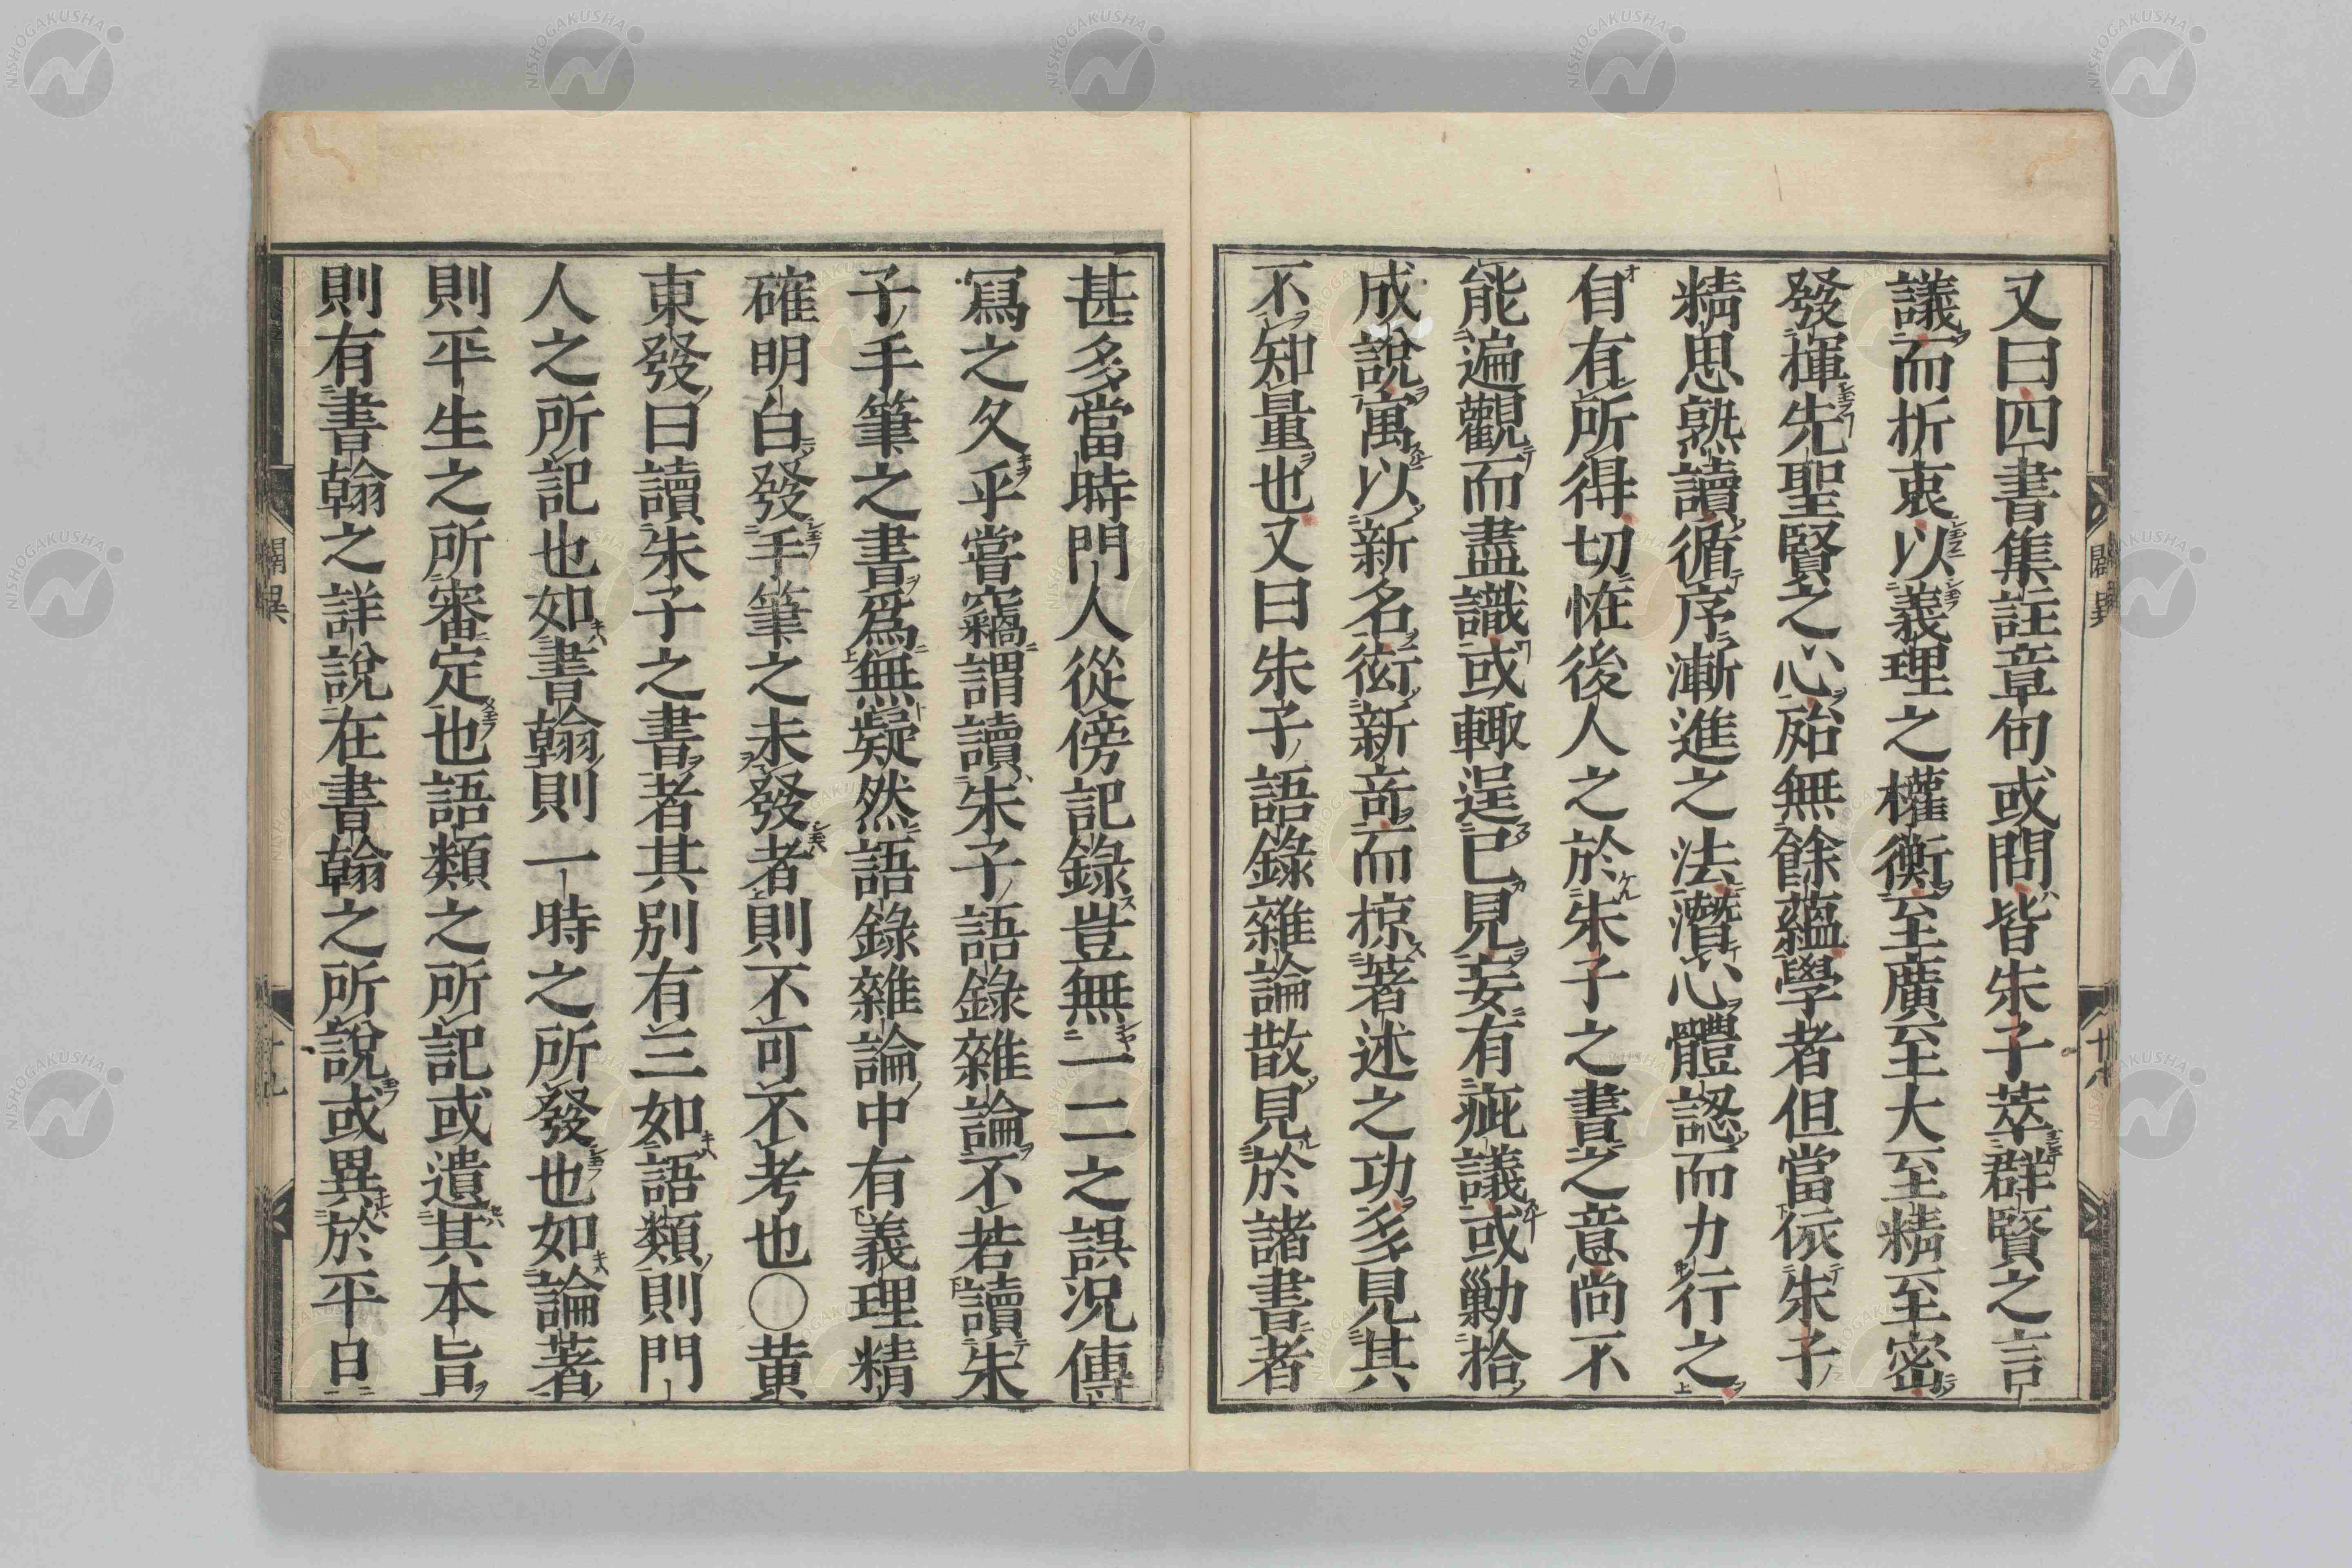 又曰四書集註章句或問皆朱子萃群賢之言
議而折衷以義理之權衡至廣至大至精至密
發揮先聖賢之心殆無餘蘊學者但當依朱子
精思熟讀循序漸進之法潛心體認而力行之
自有所得切恠後人之於朱子之書之意尚不
能遍觀而盡識或輙逞已見妄有疵議或勦拾
成說寓以新名衒新竒而掠著述之功多見其
不知量也又曰朱子語錄雜論散見於諸書者
甚多當時門人從傍記錄豈無一二之誤況傳
寫之久乎嘗竊謂讀朱子語錄雜論不若讀朱
子手筆之書爲無疑然語錄雜論中有義理精
確明白發手筆之未發者則不可不考也○黃
東發曰讀朱子之書者其別有三如語類則門
人之所記也如書翰則一時之所發也如論著
則平生之所審定也語類之所記或遺其本旨
則有書翰之詳說在書翰之所說或異於平日
闢異
廿八
闢異
NISHOGAKUSHA